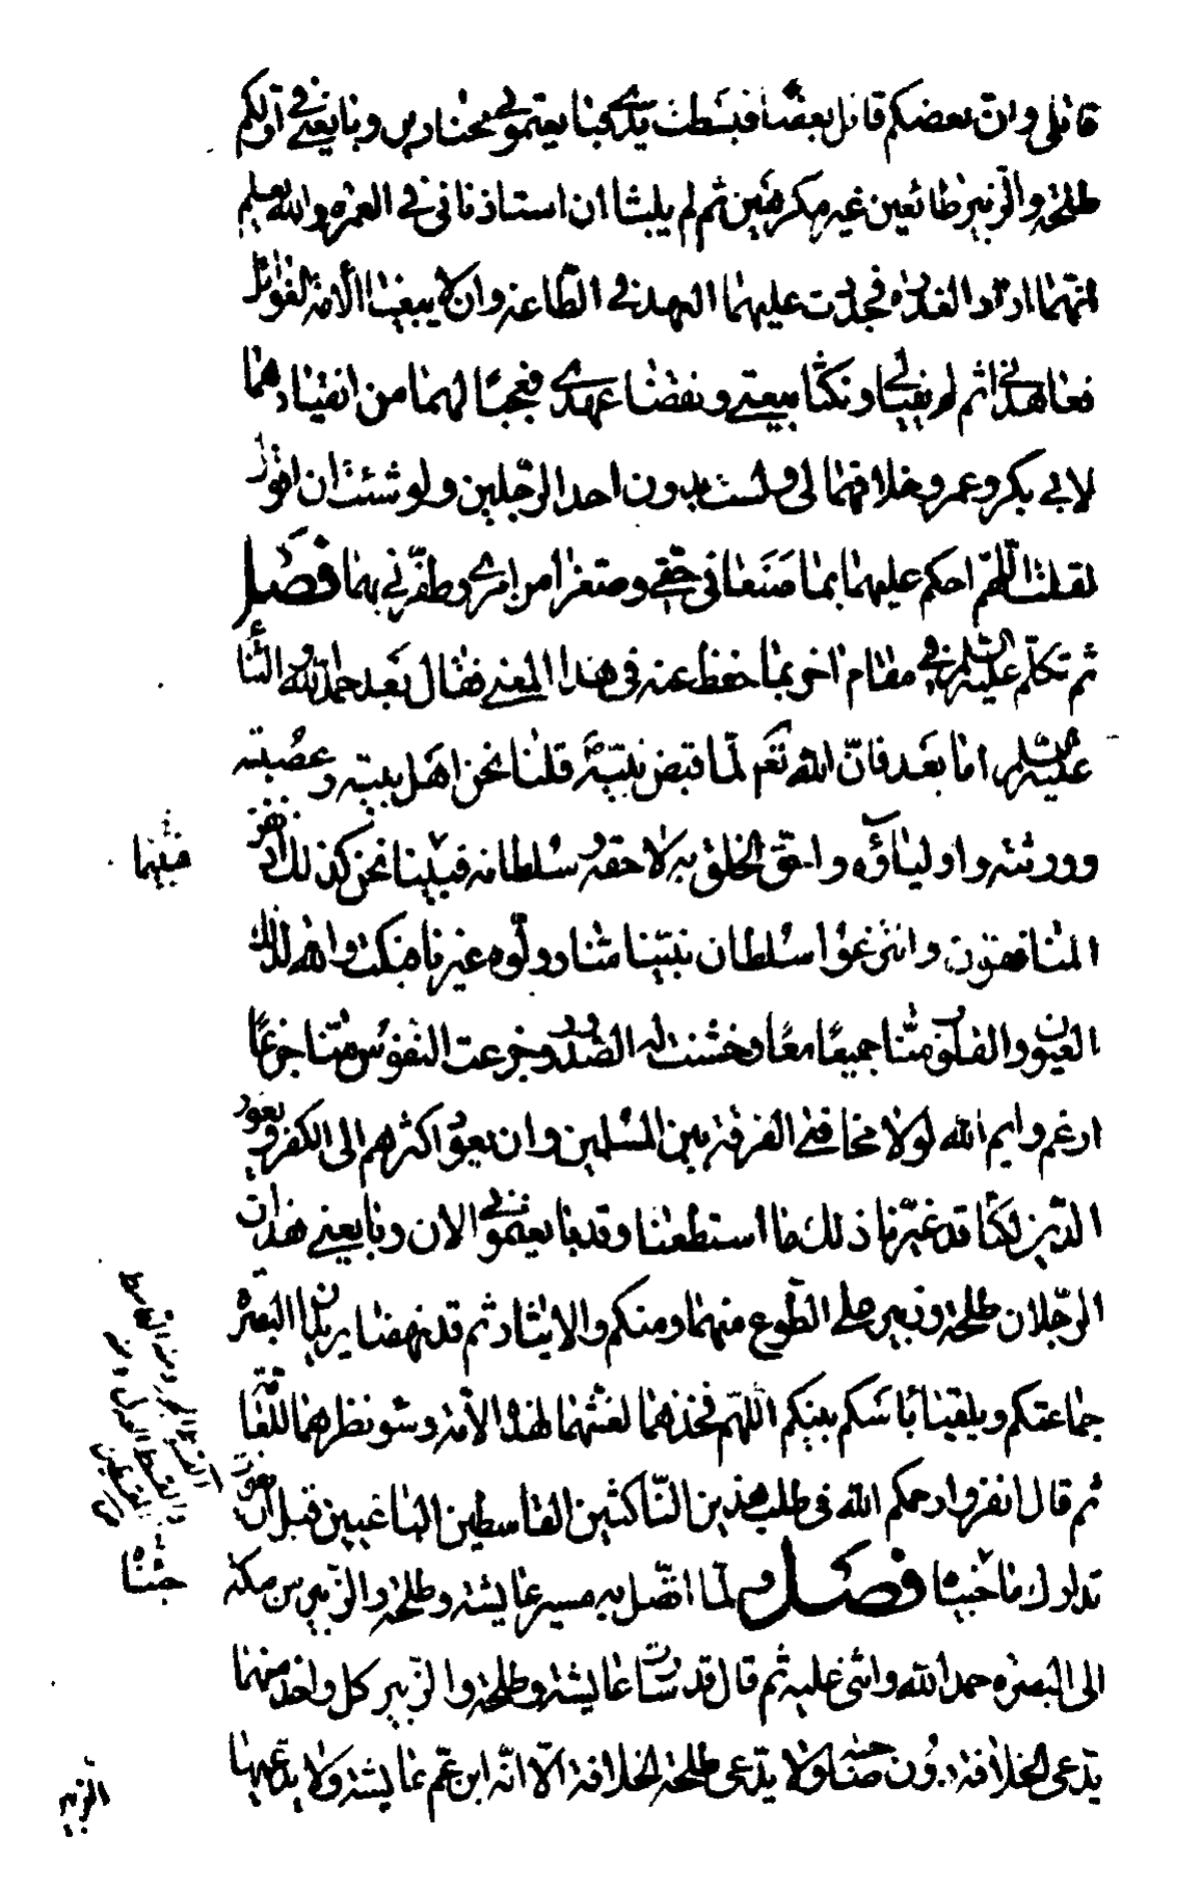 قاتلي وان بعضكم قاتل بعضا فبسطت يدى فبايعتمونى مختارين وبايعني في اولكم
طلحة والزبير طائعين غير مكرهين ثم لم يلبثا ان استاذناني في العمرة والله يعلم
انهما ارادا الغدرة فجددت عليهما العهد في الطاعة وان لا يبغيا الأمة الغوائل
فعاهداني ثم لم يفيا لي ونكثا بيعتي ونقضا عهدي فعجبًا لهما من انقيادهما
لابي بكر وعمر وخلافهما لي ولست بدون احد الرّجلين ولو شئت ان اقول
لقلت اللّهمّ احكم عليهما بما صنعا في حقّي وصغّرا من امري وظفّرني بهما فصل
ثم تكلّم عليه السلام في مقام اخر بما حفظ عنه في هذا المعني فقال بعد حمد الله والثنا
عليه اما بعد فانّ الله تعم لمّا قبض نبيّه قلنا نحن اهل بيته وعصبته
وورثته واولياؤه واحقّ الخلق به لا حقه وسلطانه فبينا نحن كذلك اذ نفر
المنافقون وانتزعوا سلطان نبيّنا منّا وولّوه غيرنا فبكت والله لذلك
العيون والقلوب منّا جميعًا معًا وخشنت له الصّدور وجزعت النفوس منّا جزعًا
ارغم وايم الله لولا مخافتي الفرقة بين المسلمين وان يعود اكثرهم الى الكفر ويعود
الدّين لكنّا قد غيّرنا ذلك ما استطعنا وقد بايعتموني الان وبايعني هذان
الرّجلان طلحة وزبير على الطّوع منهما ومنكم والايثار ثم قد نهضا يريدان البصرة
جماعتكم ويلقيا باسكم بينكم اللّهمّ فخذهما لغشّهما لهذه الامّة وسوء نظرهما للعامّة
ثم قال انفروا رحمكم الله في طلب هذين النّاكثين القاسطين الباغيين قبل ان يفوت
تدارك ما خبيا فصل ولمّا اتّصل به مسير عايشة وطلحة والزّبير من مكّة
الى البصرة حمد الله واثنى عليه ثم قال قد سارت عايشة وطلحة والزّبير كل واحد منهما
يدّعى الخلافة دون صاحبه ولا يدّعى طلحة الخلافة الّا انّه ابن عمّ عايشة ولا يدّعيها
فبينما
جنيا
الزبير